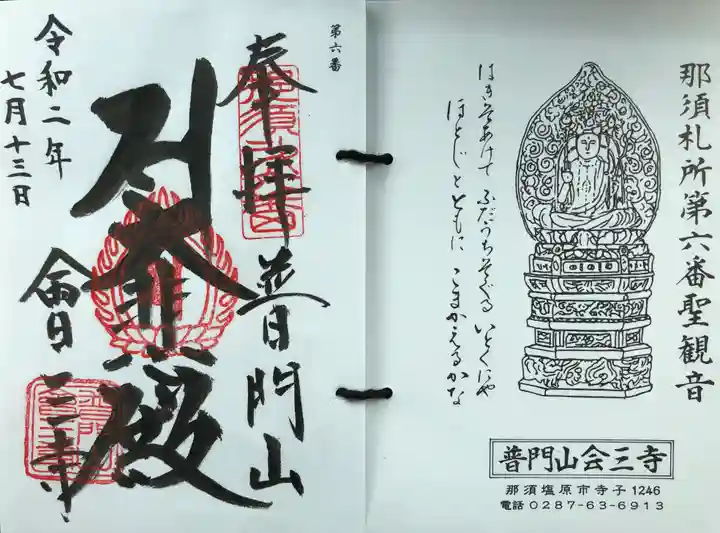 那須札所第六番聖観音
はきそあけて ふだうちそくる いとくにや
ほとじととともに こまかえるかな
普門山会三寺
那須塩原市寺子1246
電話0287-63-6913
第六番
奉拝
普門山
大悲殿
會三寺
令和二年
七月十三日